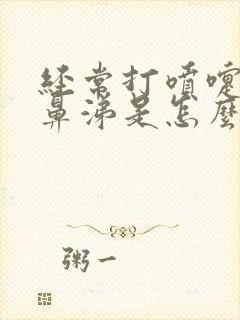 經常打噴嚏
鼻涕是怎麼
粥一